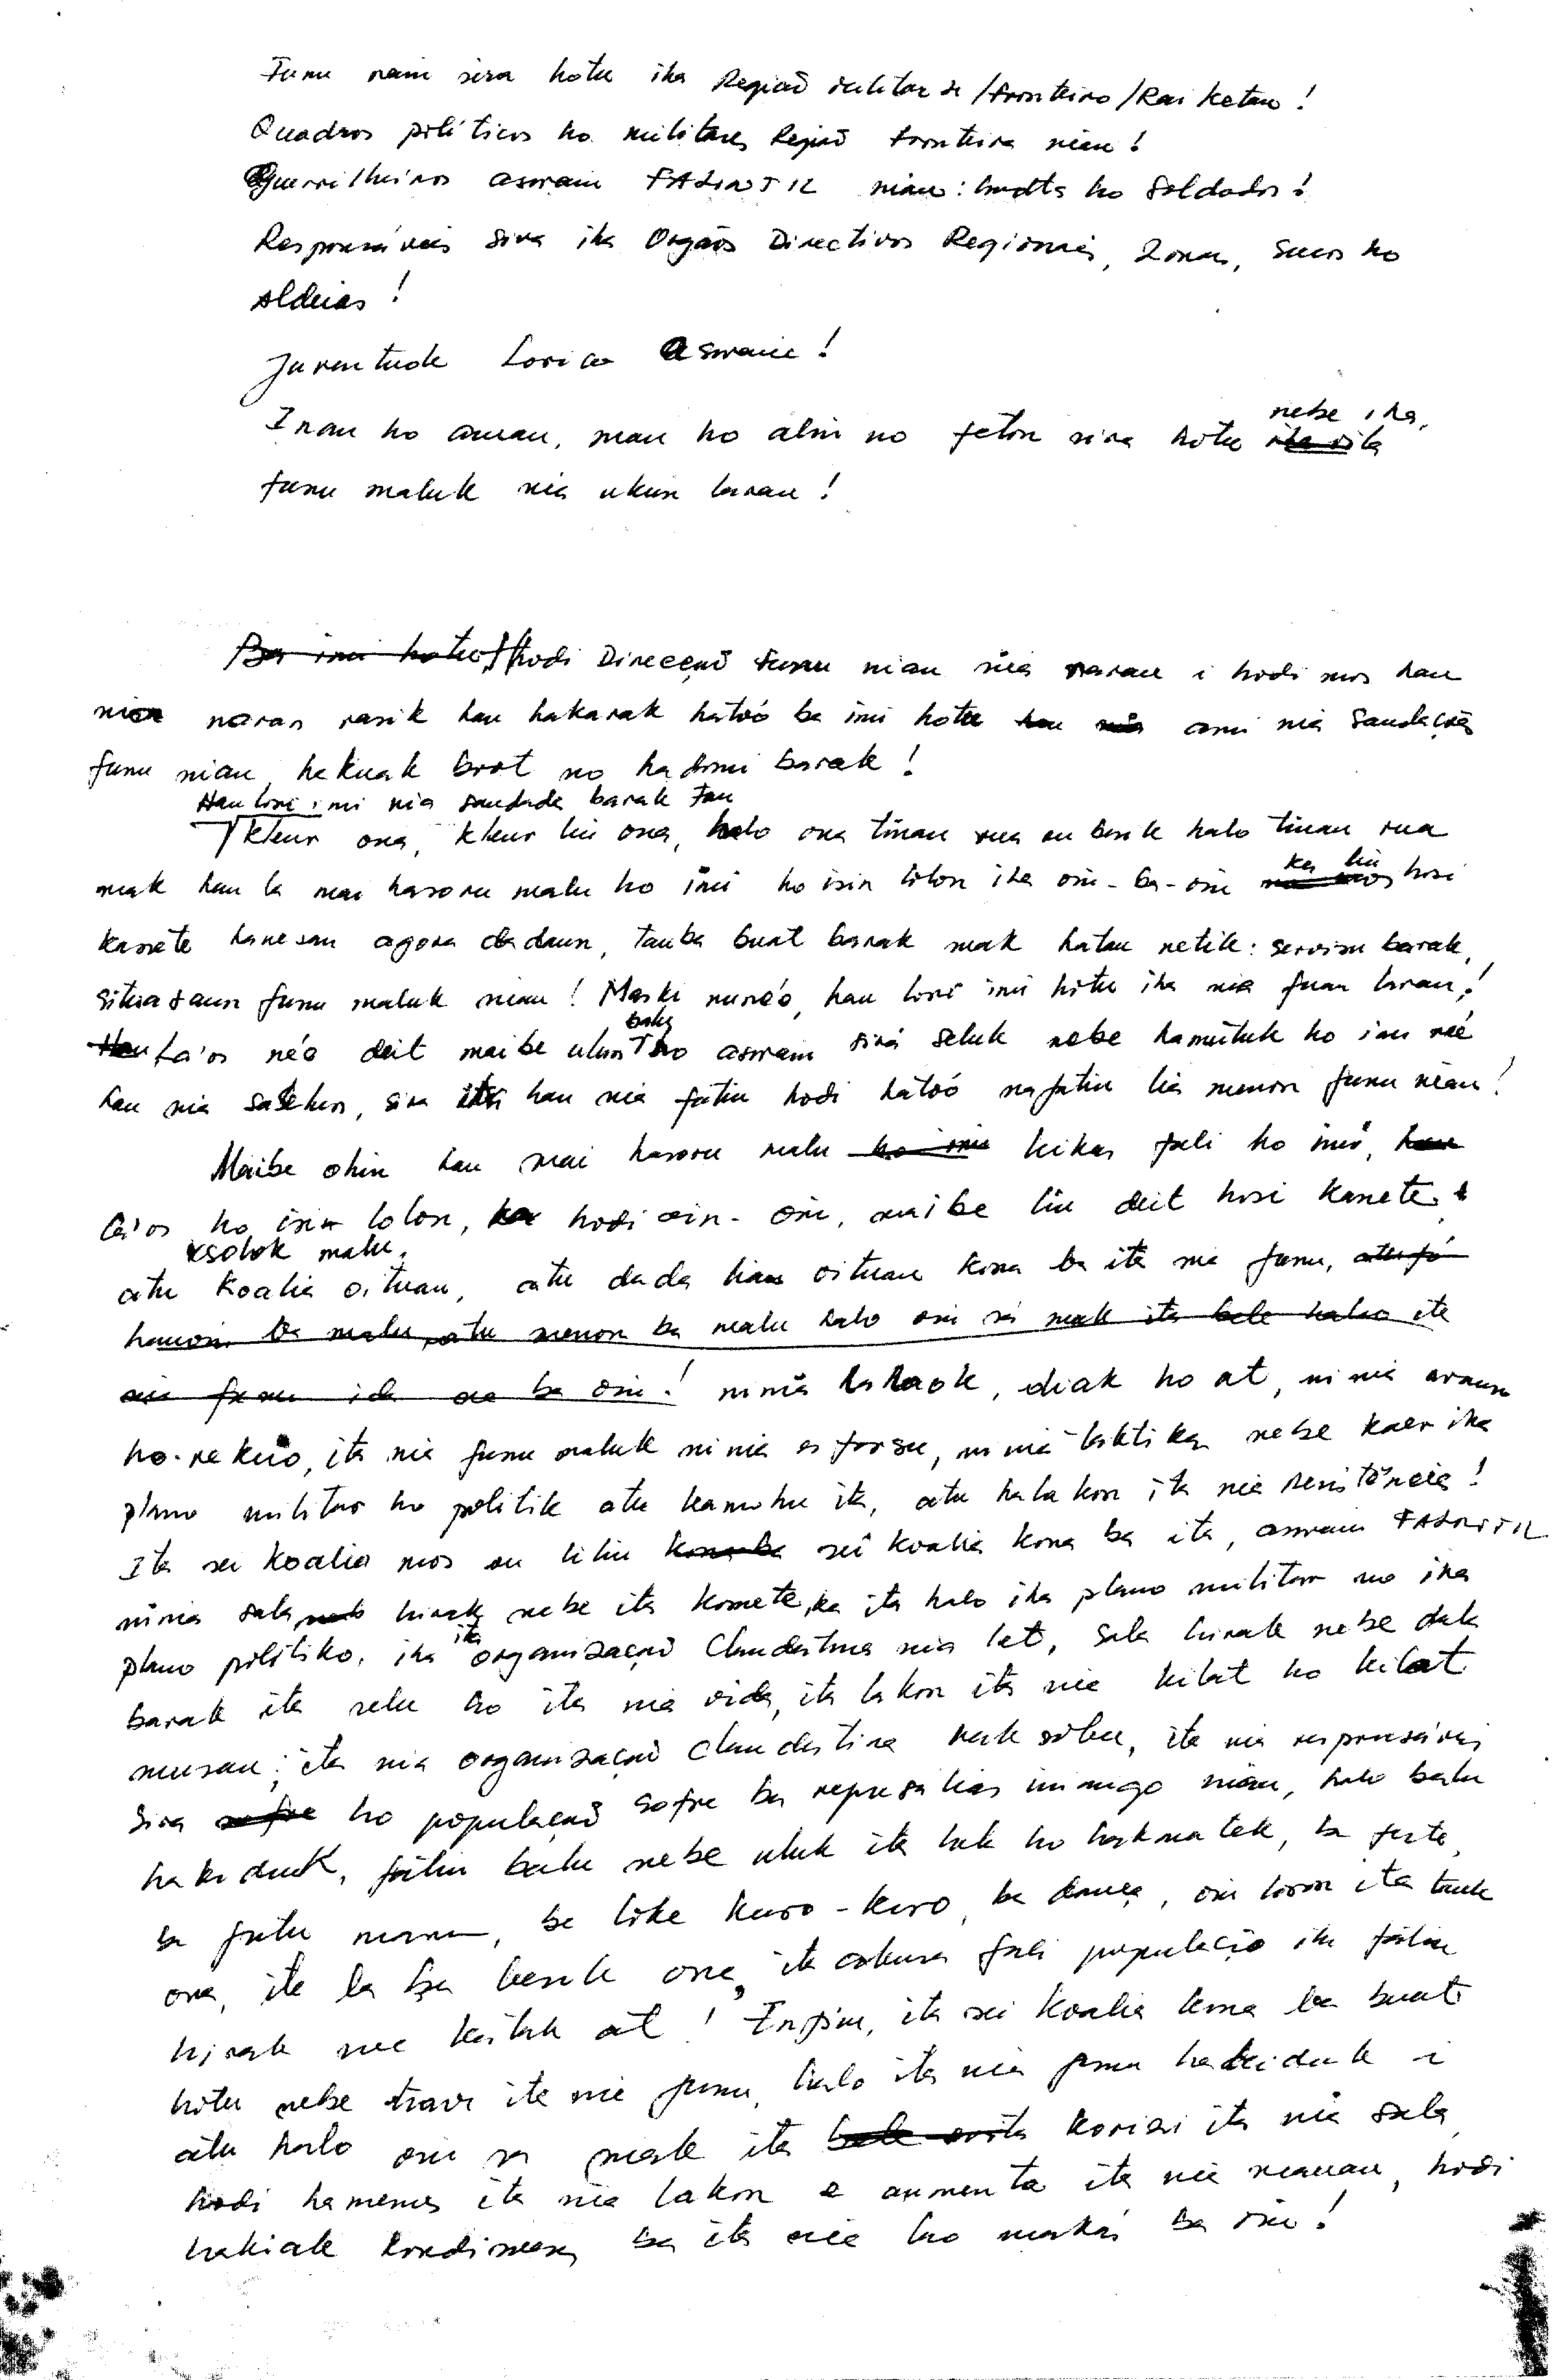 Funu nain sira hotu iha Região militar / Fronteira / Rai Ketan!
Quadros políticos ho militares Região Fronteira nian!
Guerrilheiros aswain FALINTIL nian: ho Soldados!
Responsáveis sira iha Orgãos Directivos Regionais, Zonas, Sucos ho
Aldeias!
Juventude Lorico Aswain!
nebe iha
Inan ho aman, maun ho alin no feton sira hotu
funu maluk nia ukun laran!
Ba imi hotu, hodi Direcção Funu nian nia naran i hodi mos hau
nia naran rasik hau hakarak hatoó ba imi hotu hau nia ami nia Saudações
funu nian, hakuak boot no hadomi barak!
Hau lori imi nia saudade barak tan
Kleur ona, kleur liu ona, halo ona tinan rua ou besik halo tinan rua
mak hau la mai hasoru malu ho imi ho isin lolon iha oin-ba-oin
ka liu hosi
kassete hanesan agora dadaun, tanba buat barak mak hatau netik: servisu barak,
situasaun funu maluk nian! Maski nuneé, hau lori imi hotu iha nia fuan laran!
balu
Hau La'os neé deit maibe ulun ho aswain sira seluk nebe hamutuk ho imi neé
hau nia , sira hau nia fatin hodi hatoó nafatin lia menon funu nian!
Maibe ohin hau mai hasoru malu ho imi hikas fali ho imi, hau
la'os ho isin lolon, hodi oin-oin, maibe liu deit hosi kassete
ksolok malu,
atu koalia oituan, atu dada lian oituan kona ba ita nia funu, atu fó
hanoin ba malu, atu menon ba malu halo oin sá mak ita bele halao ita
nia funu ida ne ba oin! ninia lalaok, diak ho at, ninia
ho , ita nia funu maluk ninia esforsu, ninia taktika nebe kaer iha
plano militar ho politik atu hamohu ita, atu halakon ita nia resistência!
Ita sei koalia mos ou liliu kona ba sei koalia kona ba ita, aswain FALINTIL
ninia sala hirak nebe ita komete, ka ita halo iha plano militar no iha
plano politiko, iha ita organização Clandestina nia let, sala hirak nebe dala
barak ita selu ho ita nia vida, ita lakon ita nia kilat ho kilat
musan; ita nia organização clandestina nak sobu, ita nia responsáveis
sira sofre ho população sofre ba represalias inimigo nian, halo balu
hakiduk, fatin balu nebe uluk ita hak ho hakmatek, ba festa,
ba futu manu, ba loke kuro-kuro, ba dança, oin loron ita tauk
ona, ita la ba besik ona, ita fali população iha fatin
hirak nee katak at! Enfim, ita sei koalia kona ba buat
hotu nebe trava ita nia funu, halo ita nia funu hakiduk i
atu halo oin sa mak ita bele korisi ita nia sala
hodi hamenus ita nia lakon e aumenta ita nia manan, hodi
hakiak kondisoens ba ita nia ba oin!